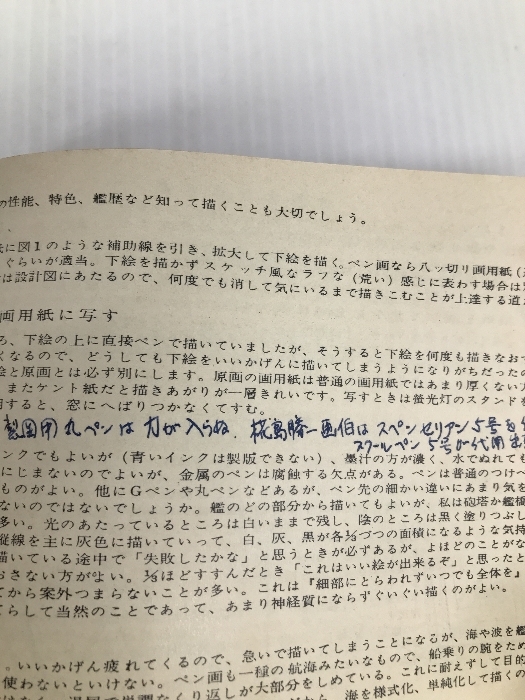 の性能、特色、艦歴など知って描くことも大切でしょう。
に図1のような補助線を引き、拡大して下絵を描く。ペン画なら八ッ切り画用紙(
ぐらいが適当。下絵を描かずスケッチ風なラフな(荒い)感じに表わす場合は
は設計図にあたるので、何度でも消して気にいるまで描きこむことが上達する道
画用紙に写す
ろ、下絵の上に直接ペンで描いていましたが、そうすると下絵を何度も描きなおす
くなるので、どうしても下絵をいいかげんに描いてしまうようになりがちだった
絵と原画とは必ず別にします。原画の画用紙は普通の画用紙ではあまり厚くない
またケント紙だと描きあがりが一層きれいです。写すときは螢光灯のスタンドを
用すると、窓にへばりつかなくてすむ。
製図用丸ペンは力が入らぬ. 椛島勝一画伯はスペンセリアン5号を
スクールペン5号が代用出
ンクでもよいが(青いインクは製版できない)、墨汁の方が濃く、水でぬれても
にじまないのでよいが、金属のペンは腐蝕する欠点がある。ペンは普通のつけペ
ものがよい。他にGペンや丸ペンなどあるが、ペン先の細かい違いにあまり気を
ないのではないでしょうか。艦のどの部分から描いてもよいが、私は砲塔か艦橋
多い。光のあたっているところは白いままで残し、陰のところは黒く塗りつぶし
縦線を主に灰色に描いていって、白、灰、黒が各⅓づつの面積になるような気持
描いている途中で「失敗したかな」と思うときが必ずあるが、よほどのことがな
おさない方がよい。⅔ほどすすんだとき「これはいい絵が出来るぞ」と思ったと
てから案外つまらないことが多い。これは『細部にとらわれずいつでも全体を』
てらして当然のことであって、あまり神経質にならずぐいぐい描くのがよい。
。いいかげん疲れてくるので、急いで描いてしまうことになるが、海や波を艦
使わないといけない。ペン画も一種の航海みたいなもので、船乗りの腕をため
くり返しが大部分をしめている。これに耐えずして目的
海を様式化、単純化して描くの